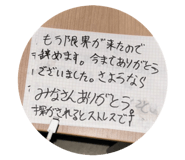 もう限界が来たので
辞めます。今までありがとう
ございました。さようなら
みなさんありがとう
探されるとストレスです